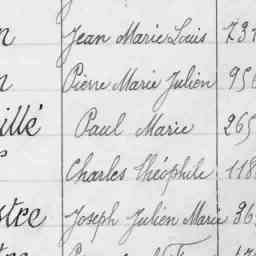 Jean Marie Louis
Pierre Marie Julien 95
illé Paul Marie 265
Charles Théophile 118
stre Joseph Julien Marie 36